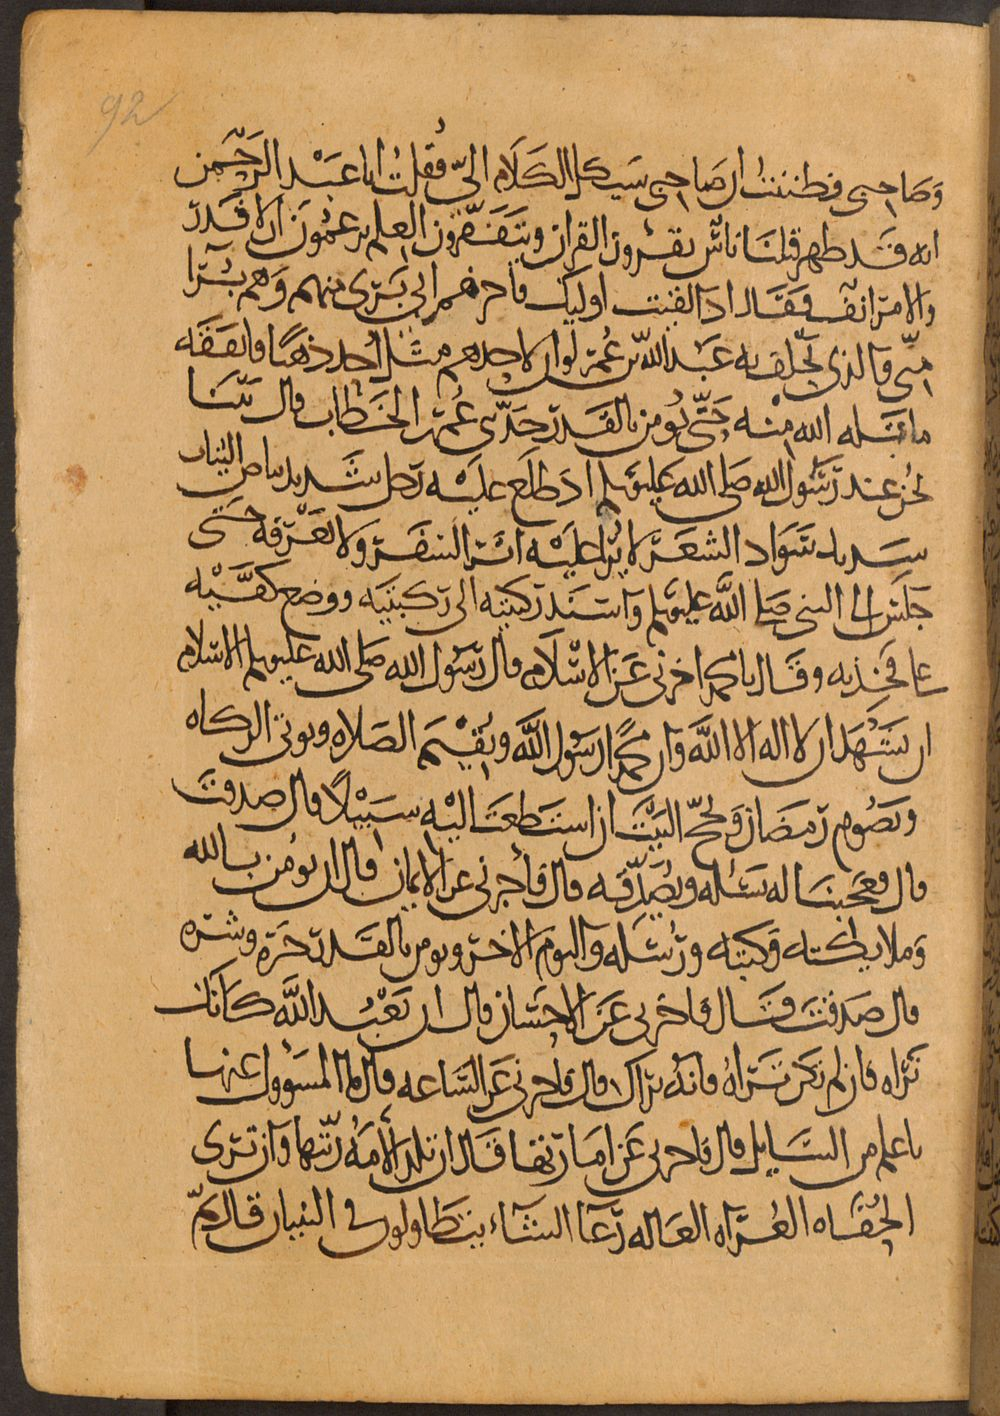 92
وصاحبي فظننت ان صاحبي سيكل الكلام الي فقلت ابا عبد الرحمن
انه قد ظهر قبلنا ناس يقرون القران ويتقفرون العلم يزعمون ان لا قدر
والامر انف فقال اذا لقيت اوليك فاخبرهم اني بري منهم وهم برآ
مني فالذي يحلف به عبد الله بن عمر لو ان لاحدهم مثل احد ذهبا فانفقه
ما قبله الله منه حتى يومن بالقدر حدثني عمر بن الخطاب قال بينا
نحن عند رسول الله صلى الله عليه وسلم اذ طلع عليه رجل شديد بياض الثياب
شديد سواد الشعر لا يرا عليه اثر السفر ولا نعرفه حتى
جلس الى النبي صلى الله عليه وسلم واسند ركبتيه الى ركبتيه ووضع كفيه
على فخذيه وقال يا محمد اخبرني عن الاسلام قال رسول الله صلى الله عليه وسلم الاسلام
ان تشهد ان لا اله الا الله وان محمدا رسول الله وتقيم الصلاه وتوتي الزكاه
وتصوم رمضان وتحج البيت ان استطعت اليه سبيلا قال صدقت
قال فعجبنا له يسئله ويصدقه قال فاخبرني عن الايمان قال ان تومن بالله
وملايكته وكتبه ورسله واليوم الاخر وتومن بالقدر خيره وشره
قال صدقت فقال فاخبرني عن الاحسان قال ان تعبد الله كانك
تراه فان لم تكن تراه فانه يراك قال فاخبرني عن الساعه قال ما المسوول عنها
باعلم من السايل قال فاخبرني عن امارتها قال ان تلد الامة ربتها وان ترى
الحفاه العراه العاله رعآ الشآء يتطاولون في البنيان قال ثم